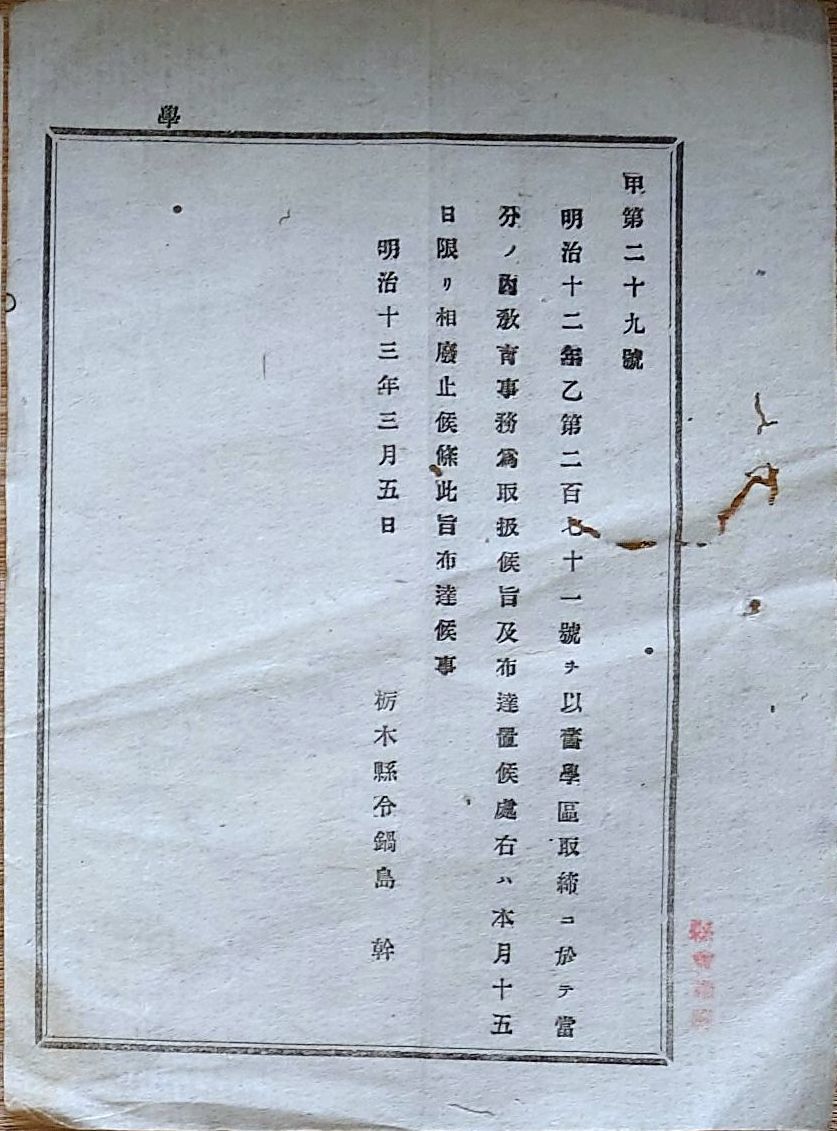 學
甲第二十九號
明治十二年乙第二百七十一號ヲ以舊學區取締ニ於テ當
分ノ內敎育事務爲取扱候旨及布達置候處右ハ本月十五
日限リ相廢止候條此旨布達候事
明治十三年三月五日
栃木縣令鍋島 幹